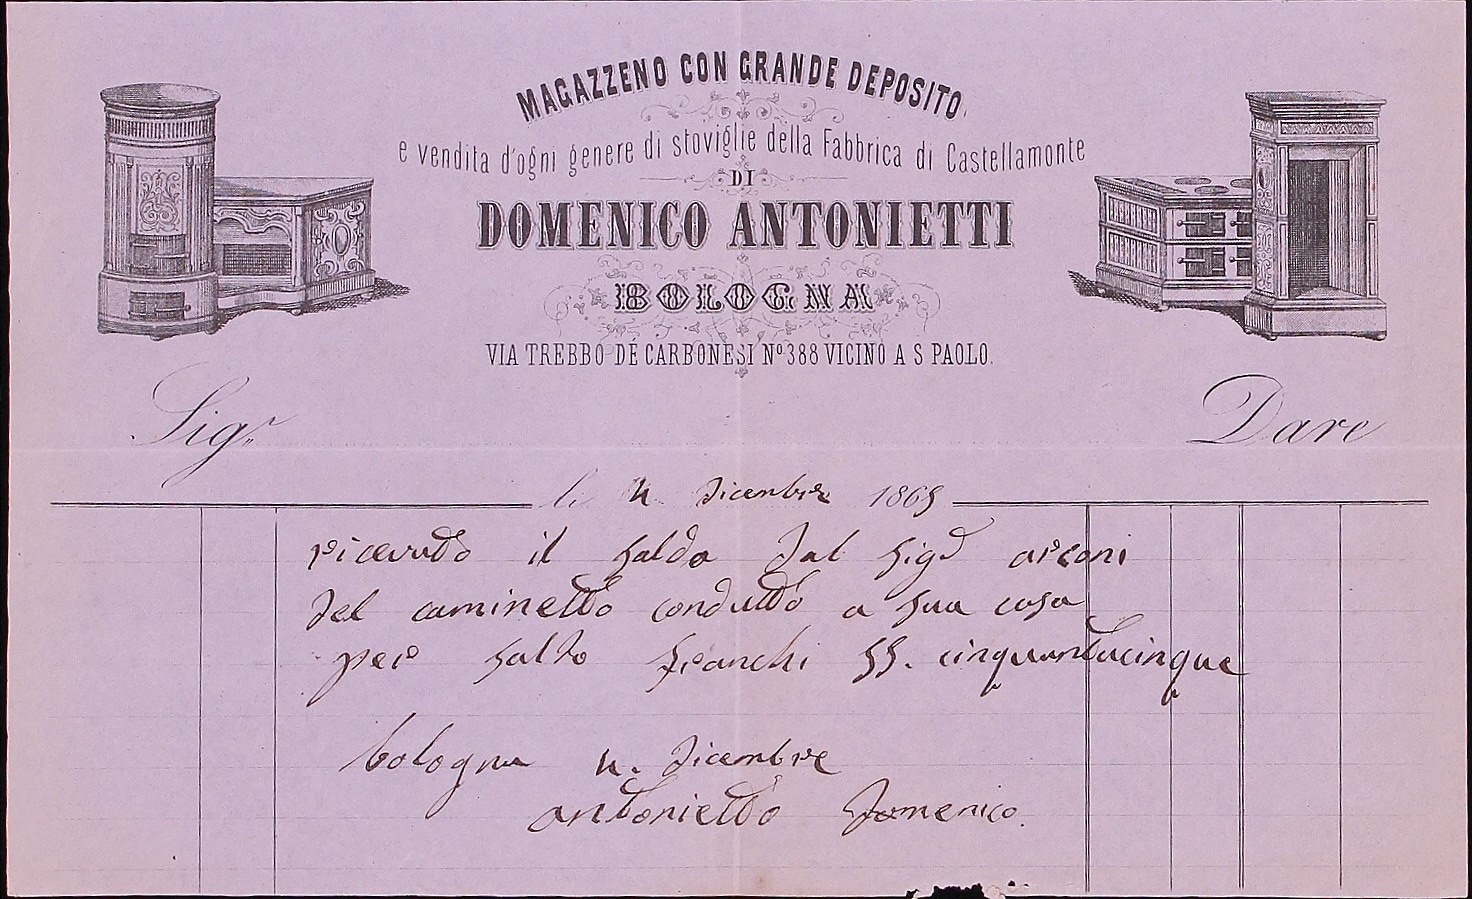 MAGAZZENO CON GRANDE DEPOSITO.
e vendita d'ogni genere di stoviglie della Fabbrica di Castellamonte
DI
DOMENICO ANTONIETTI
BOLOGNA
VIA TREBBO DE CARBONESI Nº 388 VICINO A S PAOLO.
Sigr.
Dare
li 4 Dicembre 1865
ricevudo il saldo Dal sigr arconi
Del caminetto condutto a sua casa
per saldo franchi 55. cinquantacinque
bologna 4. Dicembre
antonietto Domenico.